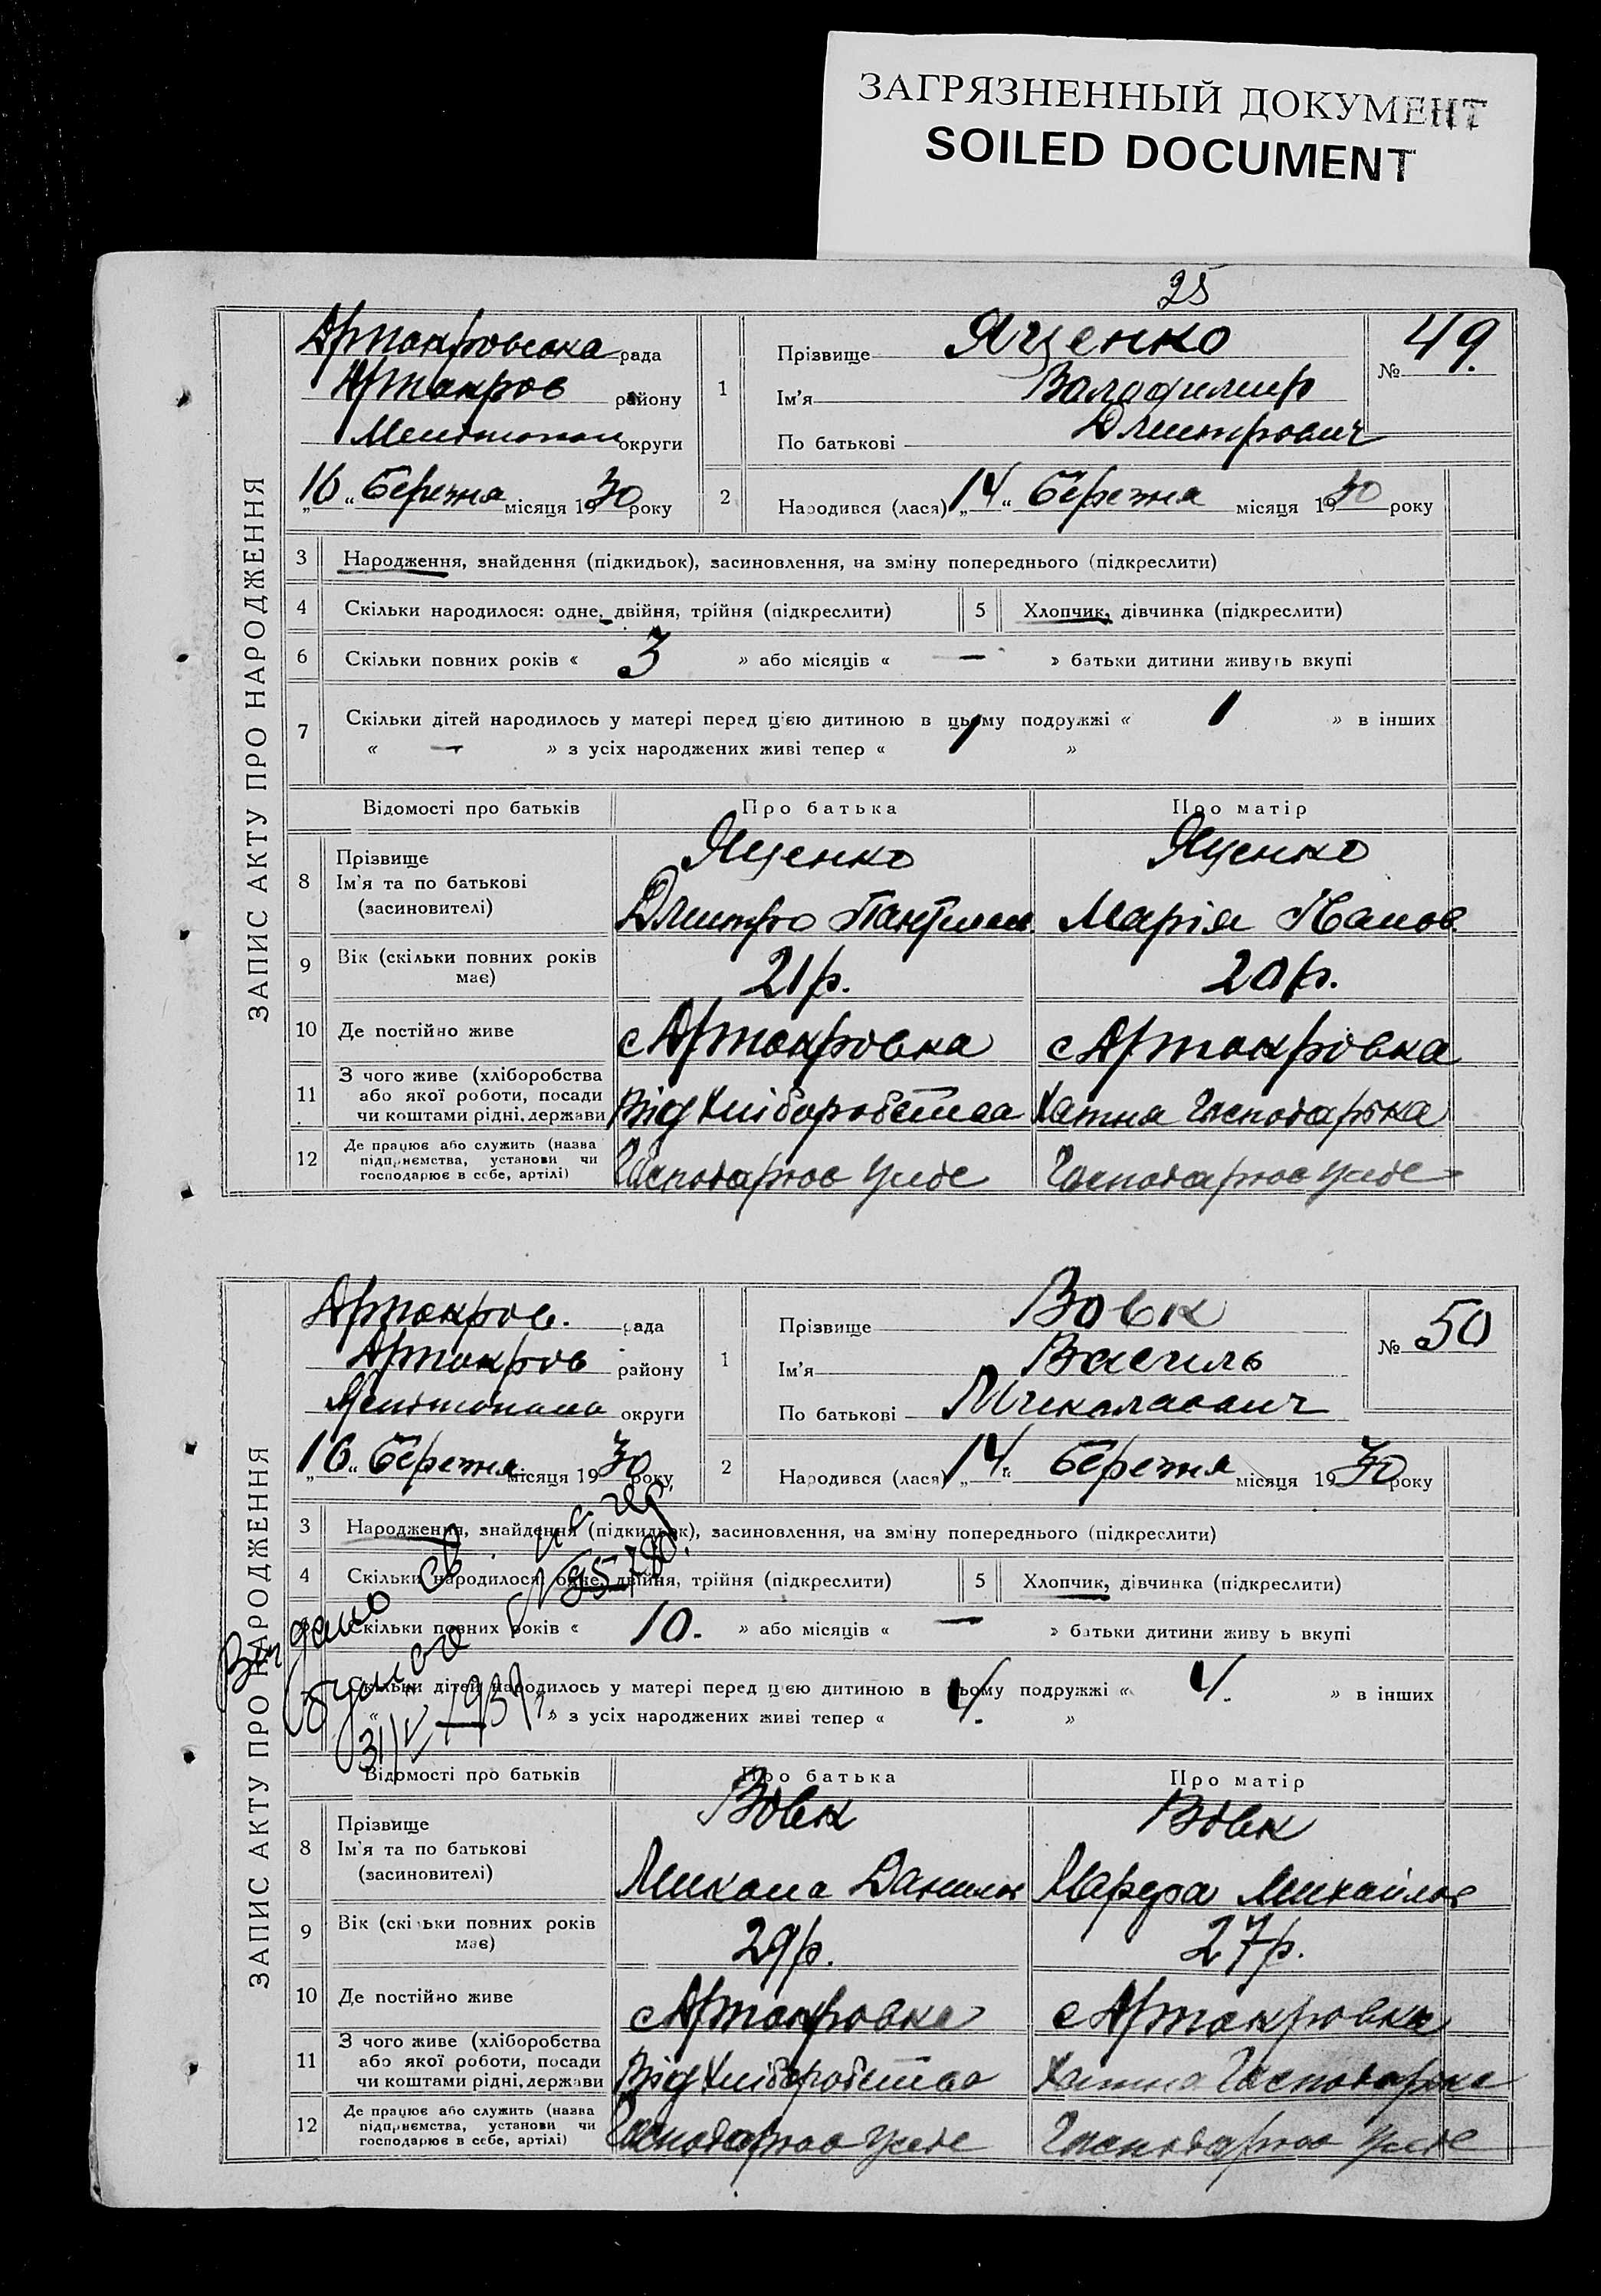 ЗАГРЯЗНЕННЫЙ ДОКУМЕНТ
SOILED DOCUMENT
25
ЗАПИС АКТУ ПРО НАРОДЖЕННЯ
рада
району
округи
„16“ Березня місяця 1930 року
1
Прізвище Яценко
Ім'я Володимир
По батькові Дмитрович
№ 49.
2
Народився (лася) „14“ березня місяця 1930 року
3 Народження, знайдення (підкидьок), засиновлення, на зміну попереднього (підкреслити)
4 Скільки народилося: одне, двійня, трійня (підкреслити)
5 Хлопчик, дівчинка (підкреслити)
6 Скільки повних років « 3 » або місяців « — » батьки дитини живуть вкупі
7 Скільки дітей народилось у матері перед цією дитиною в цьому подружжі « 1 » в інших
« — » з усіх народжених живі тепер « 1 »
Відомості про батьків Про батька Про матір
8 Прізвище Яценко Яценко
Ім'я та по батькові
(засиновителі) Дмитро Марія Іванов.
9 Вік (скільки повних років
має) 21р. 20р.
10 Де постійно живе
11 З чого живе (хліборобства
або якої роботи, посади
чи коштами рідні, держави Від Хліборобства Хатня Господарка
12 Де працює або служить (назва
підприємства, установи чи
господарює в себе, артілі) Господарює у себе Господарює у себе
ЗАПИС АКТУ ПРО НАРОДЖЕННЯ
рада
району
округи
„16“ Березня місяця 1930 року
1
Прізвище Вовк
Ім'я Василь
По батькові Миколаович
№ 50
2
Народився (лася) „14“ березня місяця 1930 року
3 Народження, знайдення (підкидьок), засиновлення, на зміну попереднього (підкреслити)
4 Скільки народилося: одне, двійня, трійня (підкреслити)
5 Хлопчик, дівчинка (підкреслити)
Скільки повних років « 10. » або місяців « — » батьки дитини живуь вкупі
Скільки дітей народилось у матері перед цією дитиною в цьому подружжі « 4. » в інших
» з усіх народжених живі тепер « 4. »
Видано
Відомості про батьків Про батька Про матір
8 Прізвище Вовк Вовк
Ім'я та по батькові
(засиновителі) Микола Данилов Марфа Михайлов
9 Вік (скільки повних років
має) 29р. 27р.
10 Де постійно живе
11 З чого живе (хліборобства
або якої роботи, посади
чи коштами рідні, держави Від Хліборобства Хатня Господарка
12 Де працює або служить (назва
підприємства, установи чи
господарює в себе, артілі) Господарює у себе Господарює у себе